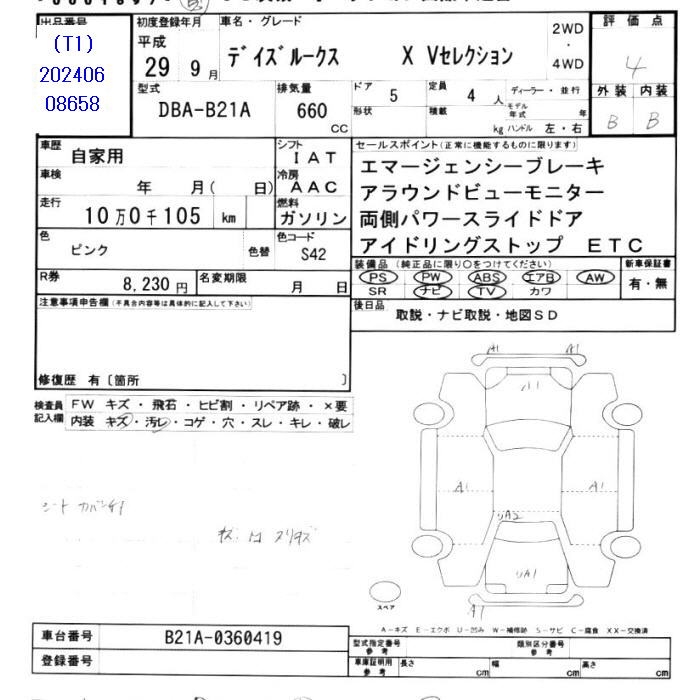 出品番号
(T1)
202406
08658
初度登録年月
平成
29 9 月
車名・グレード
デイズルークス X Vセレクション
2WD
・
4WD
評価点
4
外装 内装
B B
型式
DBA-B21A
排気量
660
CC
ドア
5
定員
4 人
ディーラー・並行
形状
積載
kg
モデル
年式 年
ハンドル 左・右
車歴
自家用
シフト
IAT
車検
年 月( 日)
冷房
AAC
走行
10万0千105 km
燃料
ガソリン
色
ピンク
色替
色コード
S42
R券
8,230円
名変期限
月 日
セールスポイント(正常に機能するものに限ります)
エマージェンシーブレーキ
アラウンドビューモニター
両側パワースライドドア
アイドリングストップ ETC
装備品(純正品に限り○をつけてください)
PS PW ABS エアB AW
SR ナビ TV カワ
新車保証書
有・無
後日品
取説・ナビ取説・地図SD
注意事項申告欄(不具合内容等は具体的に記入して下さい)
修復歴 有〔箇所 〕
検査員
記入欄
FW キズ・飛石・ヒビ割・リペア跡・×要
内装 キズ・汚レ・コゲ・穴・スレ・キレ・破レ
A1 A1
A1
A1 A1
UA2
UA1
A1
スペア
A-キズ E-エクボ U-凹み W-補修跡 S-サビ C-腐食 XX-交換済
車台番号
B21A-0360419
登録番号
型式指定番号
参考
類別区分番号
参考
車庫証明用
参考
長さ cm
幅 cm
高さ cm